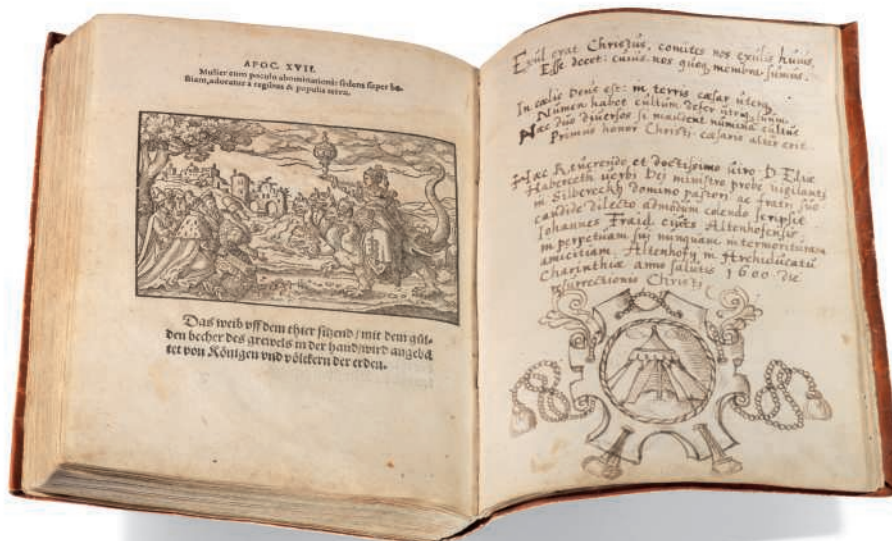 APOC. XVII.
Mulier cum poculo abominationis sedens super be-
stiam, adoratur à regibus & populis terræ.
Das weib vff dem thier sitzend / mit dem gül-
den becher des grewels in der hand / wird angebä
tet von Königen vnd völckern der erden.
Exul erat Christus, comites nos exulis huius
Esse decet: cuius nos quoq; membra sumus.
In cælis Deus est: in terris cæsar uterq;
Numen habet cultum defer utriq; suum.
Hæc duo diversos si mandent numina cultus
Primus honor Christi: cæsaris alter erit.
Hæc Reuerendo et doctissimo uiro D. Eliæ
Haberceth uerbi Dei ministro probe uigilanti
in Silberechh domino pastori ac fratri suo
candide dilecto admodum colendo scripsit
Iohannes Fraid Altenhofensis
in perpetuam suj nunquam intermorituram
amicitiam. Altenhofij in Archiducatu
Charinthiæ anno salutis 1600 die
resurrectionis Christi